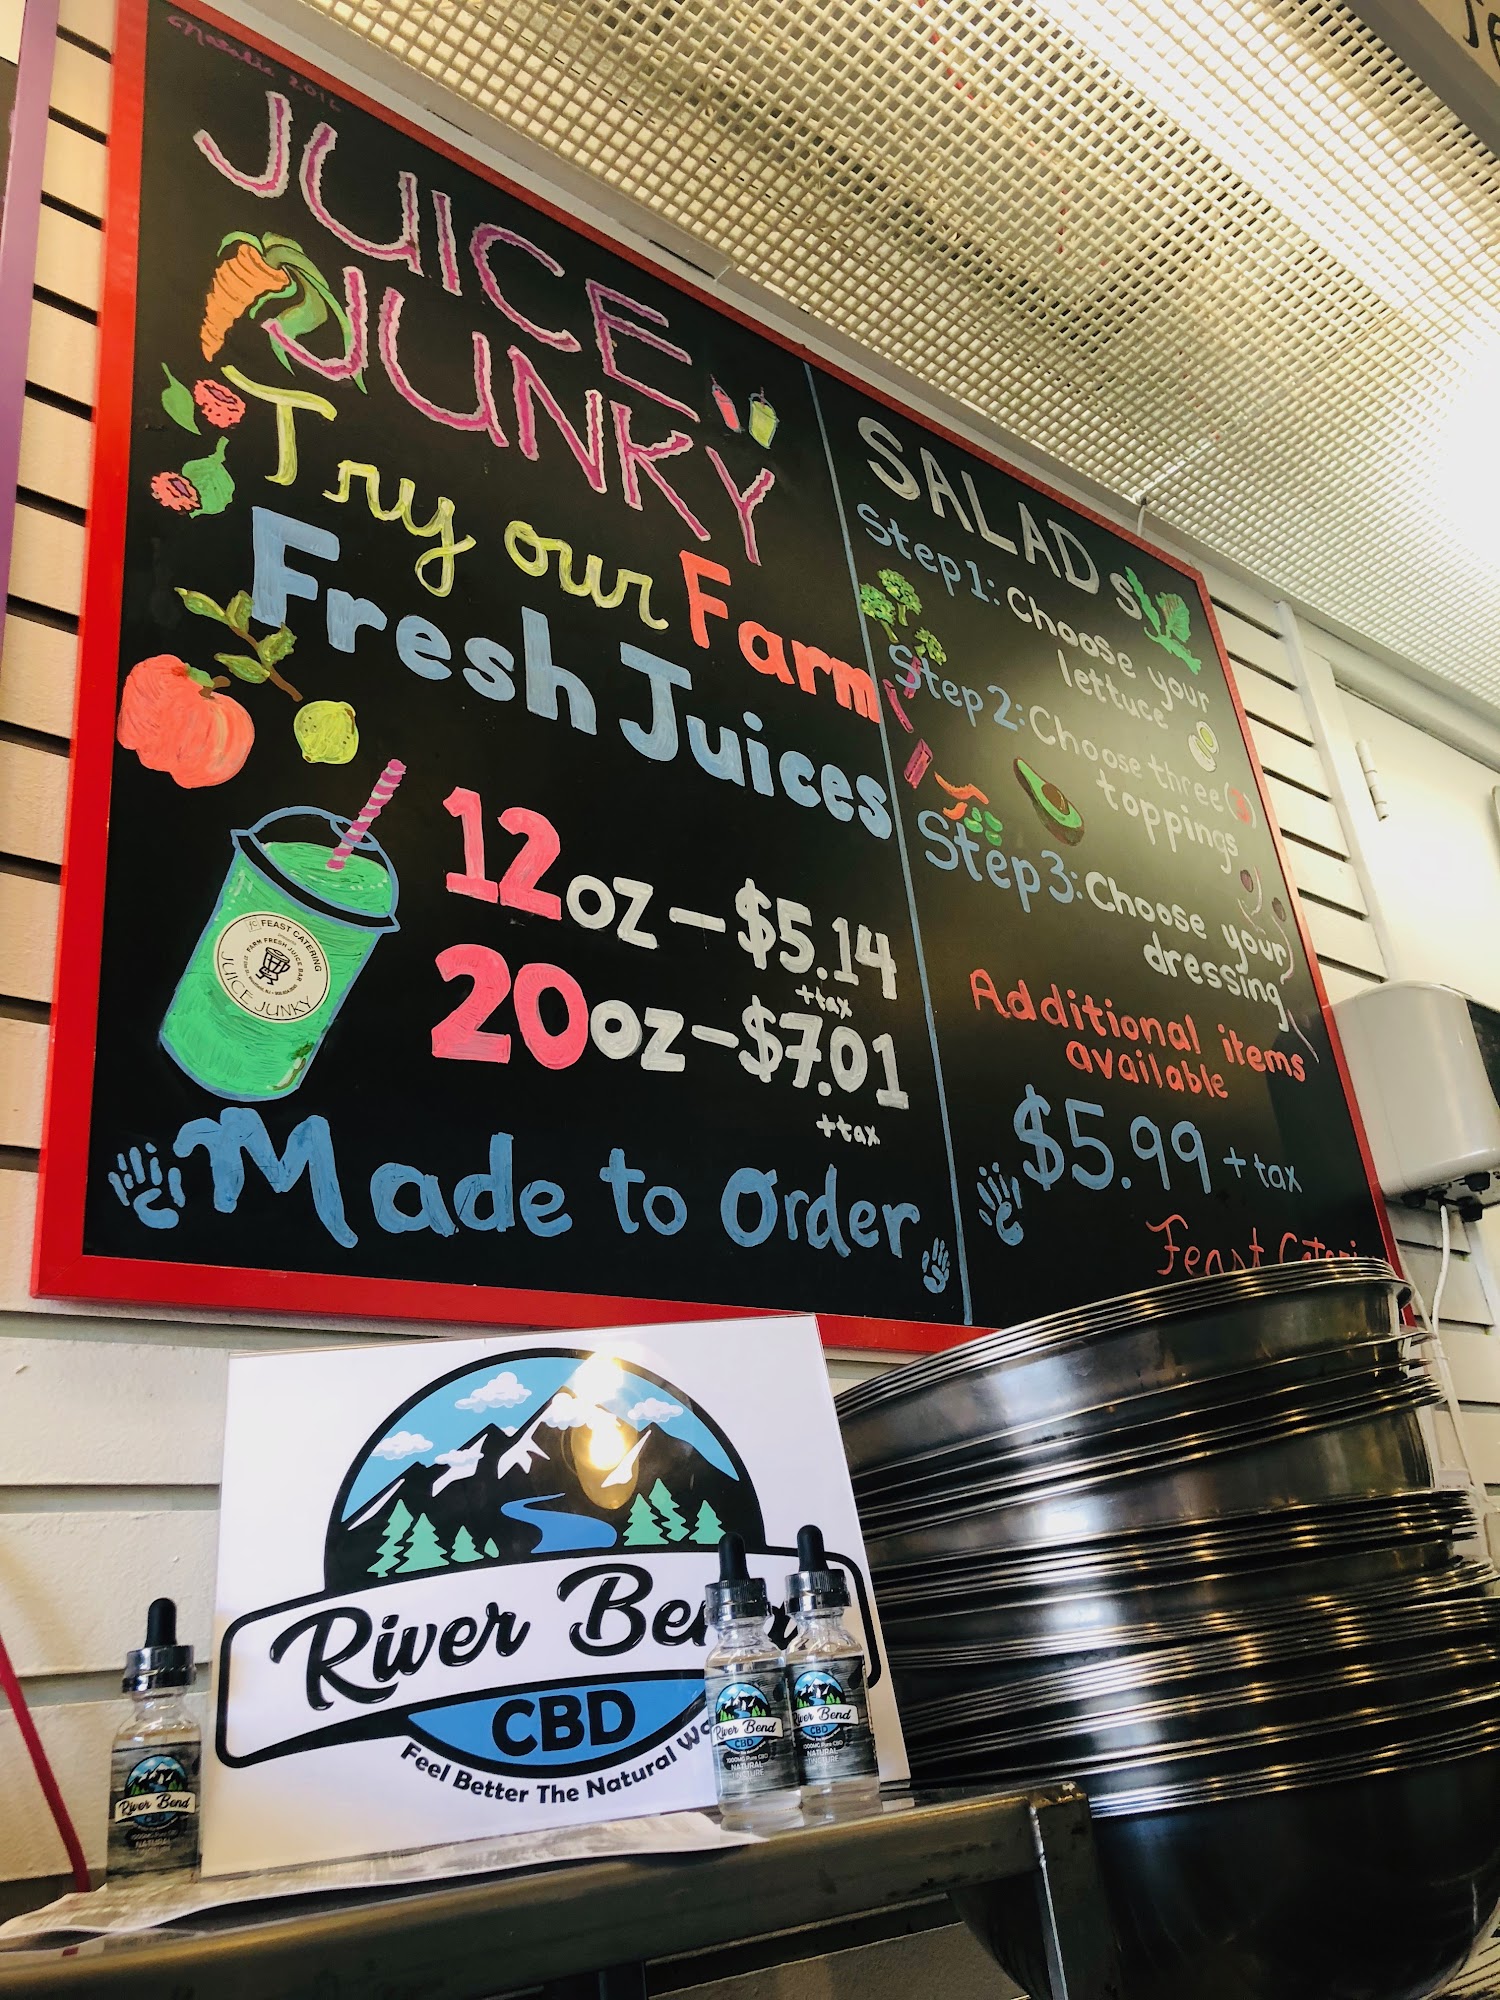 Natalie 2016
JUICE
JUNKY
Try our Farm
Fresh Juices
12oz - $5.14
+tax
20oz - $7.01
+tax
Made to Order
FEAST CATERING
FARM FRESH JUICE BAR
JUICE JUNKY
SALADS
Step 1: Choose your
lettuce
Step 2: Choose three (3)
toppings
Step 3: Choose your
dressing
Additional items
available
$5.99 + tax
Feast
River
CBD
Feel Better The Natural
River Bend
1000MG Pure CBD
NATURAL
River Bend
CBD
1000MG Pure CBD
NATURAL
TINCTURE
River Bend
CBD
1000MG Pure CBD
NATURAL
TINCTURE